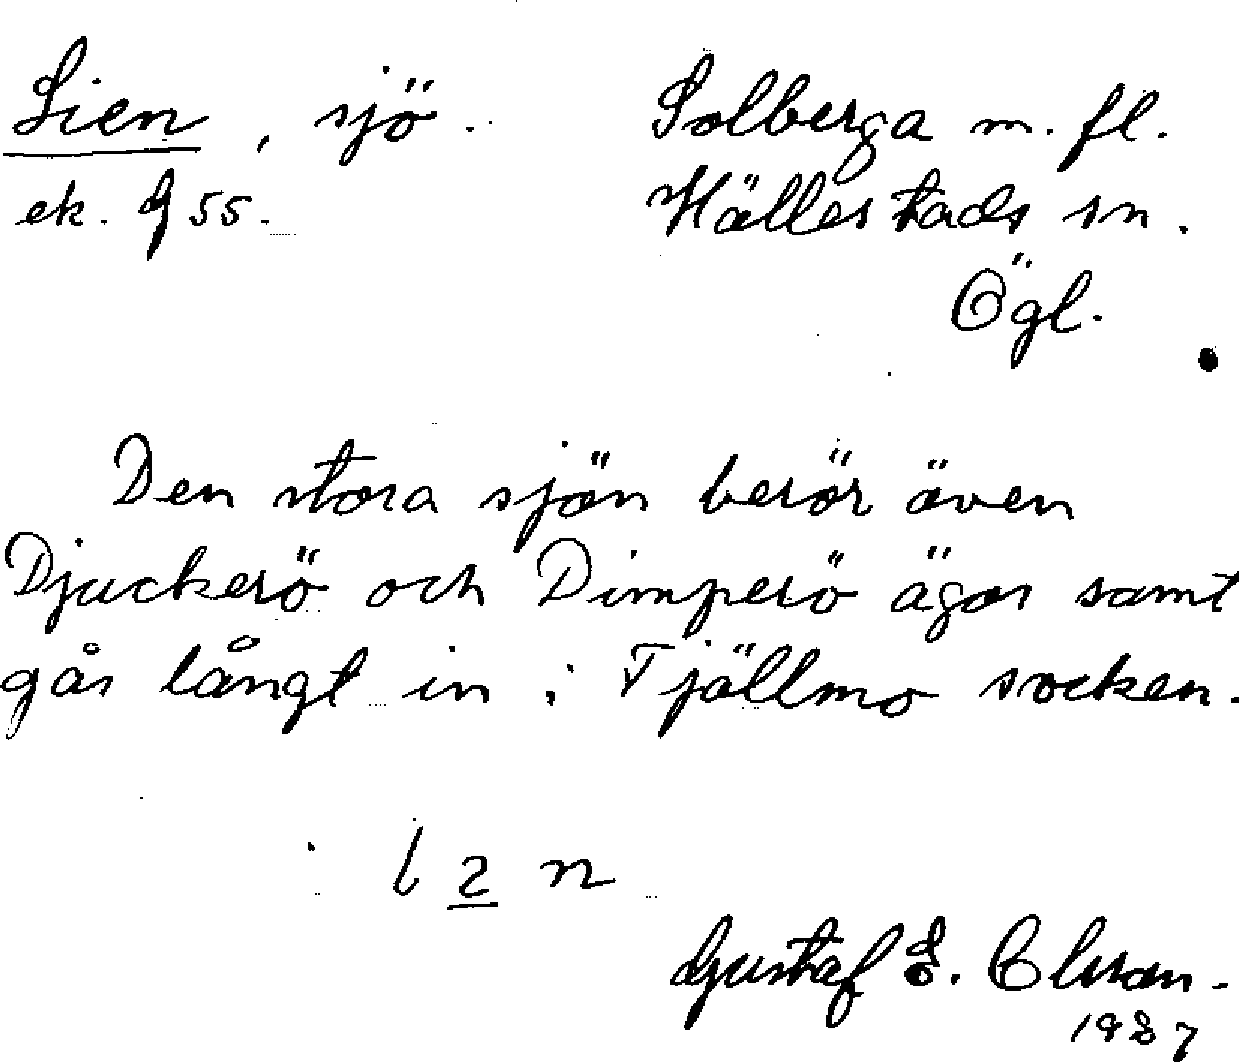 Lien, sjö. Solberga m. fl.
ek. 9 55. Hällestads sn.
Ögl.
Den stora sjön berör även
Djuckerö och Dimperö ägor samt
går långt in i Tjällmo socken.
l 2 n
Gustaf E. Olsson.
1987